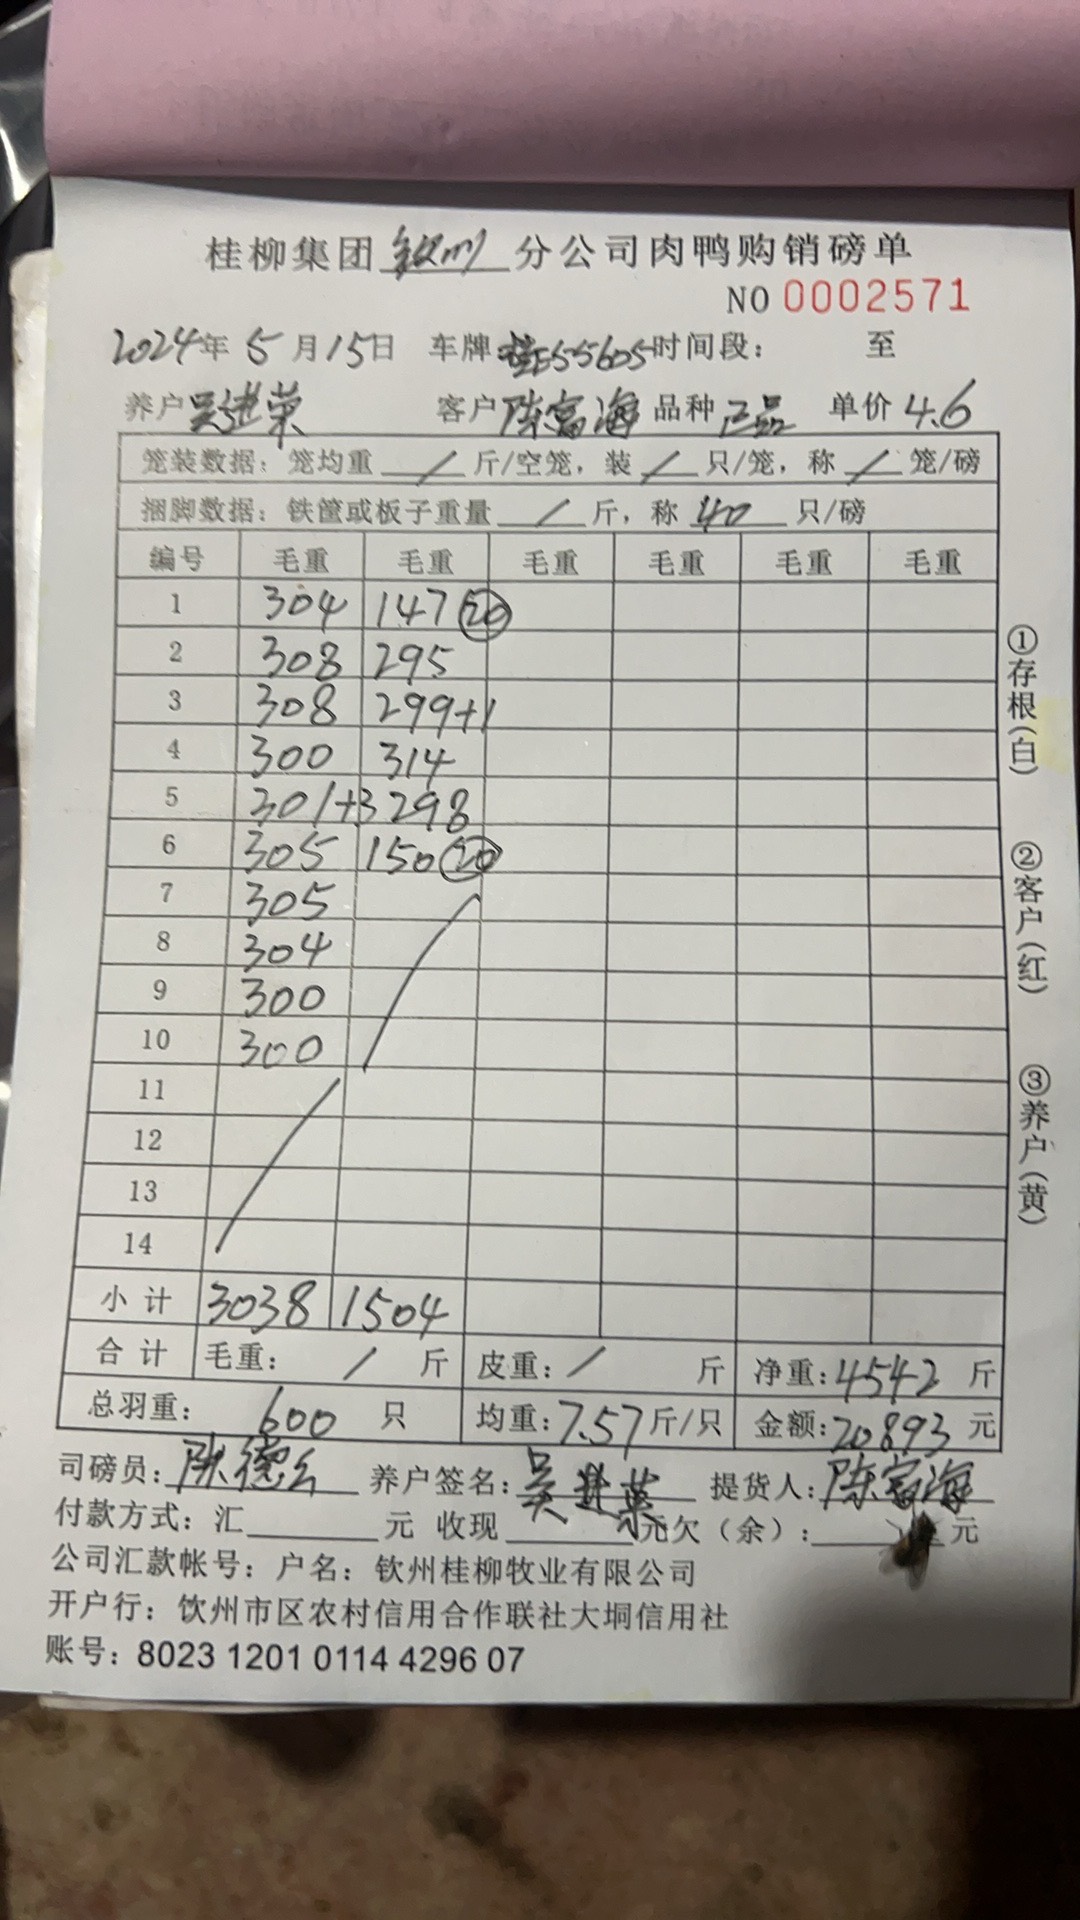 桂柳集团钦州分公司肉鸭购销磅单
NO 0002571
2024年5月15日 车牌桂E55605时间段： 至
养户吴进荣 客户陈富海 品种正品 单价4.6
笼装数据：笼均重 / 斤/空笼，装 / 只/笼，称 / 笼/磅
捆脚数据：铁筐或板子重量 / 斤，称 40 只/磅
编号 毛重 毛重 毛重 毛重 毛重 毛重
1 304 147⑳
2 308 295
3 308 299+1
4 300 314
5 301+3 298
6 305 150⑳
7 305
8 304
9 300
10 300
11
12
13
14
小计 3038 1504
合计 毛重： / 斤 皮重： / 斤 净重：4542 斤
总羽重： 600 只 均重：7.57斤/只 金额：20893 元
司磅员：陈德 养户签名：吴进荣 提货人：陈富海
付款方式：汇 元 收现 元欠（余）： 元
公司汇款帐号：户名：钦州桂柳牧业有限公司
开户行：饮州市区农村信用合作联社大垌信用社
账号：8023 1201 0114 4296 07
①存根（白）
②客户（红）
③养户（黄）